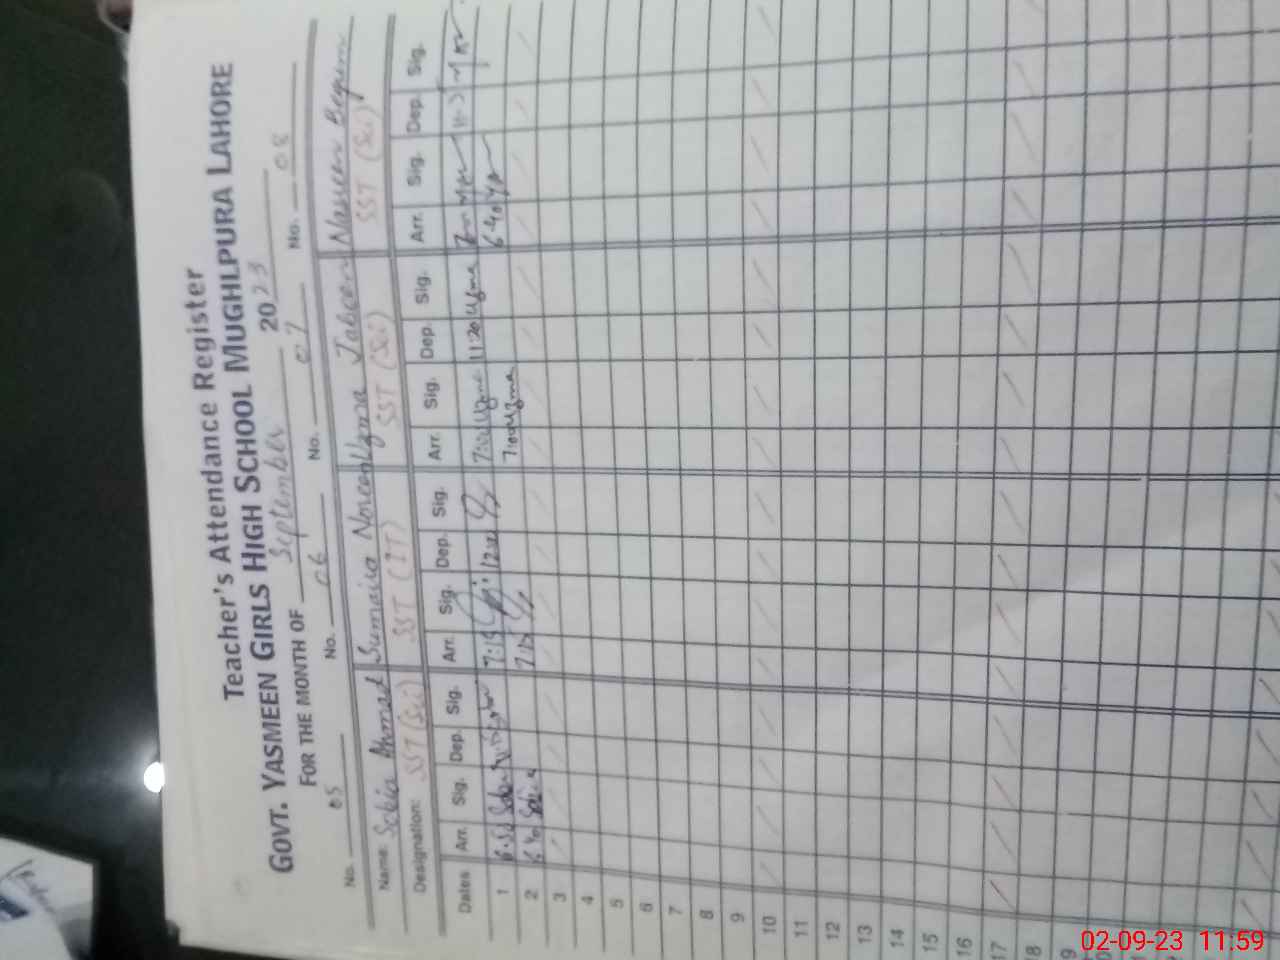 Teacher's Attendance Register
GOVT. YASMEEN GIRLS HIGH SCHOOL MUGHLPURA LAHORE
FOR THE MONTH OF September 2023
No. 05 No. 06 No. 07 No. 08
Name: Ahmad Sumaira Noreen Uzma Jabeen Naseem Begum
Designation: SST (Sci) SST (IT) SST (Sci) SST (Sci)
Dates Arr. Sig. Dep. Sig. Arr. Sig. Dep. Sig. Arr. Sig. Dep. Sig. Arr. Sig. Dep. Sig.
1 7:15 7:00 Uzma 11:20 Uzma
2 6:40 7:15 7:00 Uzma 6:40
3
4
5
6
7
8
9
10
11
12
13
14
15
16
17
18
19
02-09-23 11:59